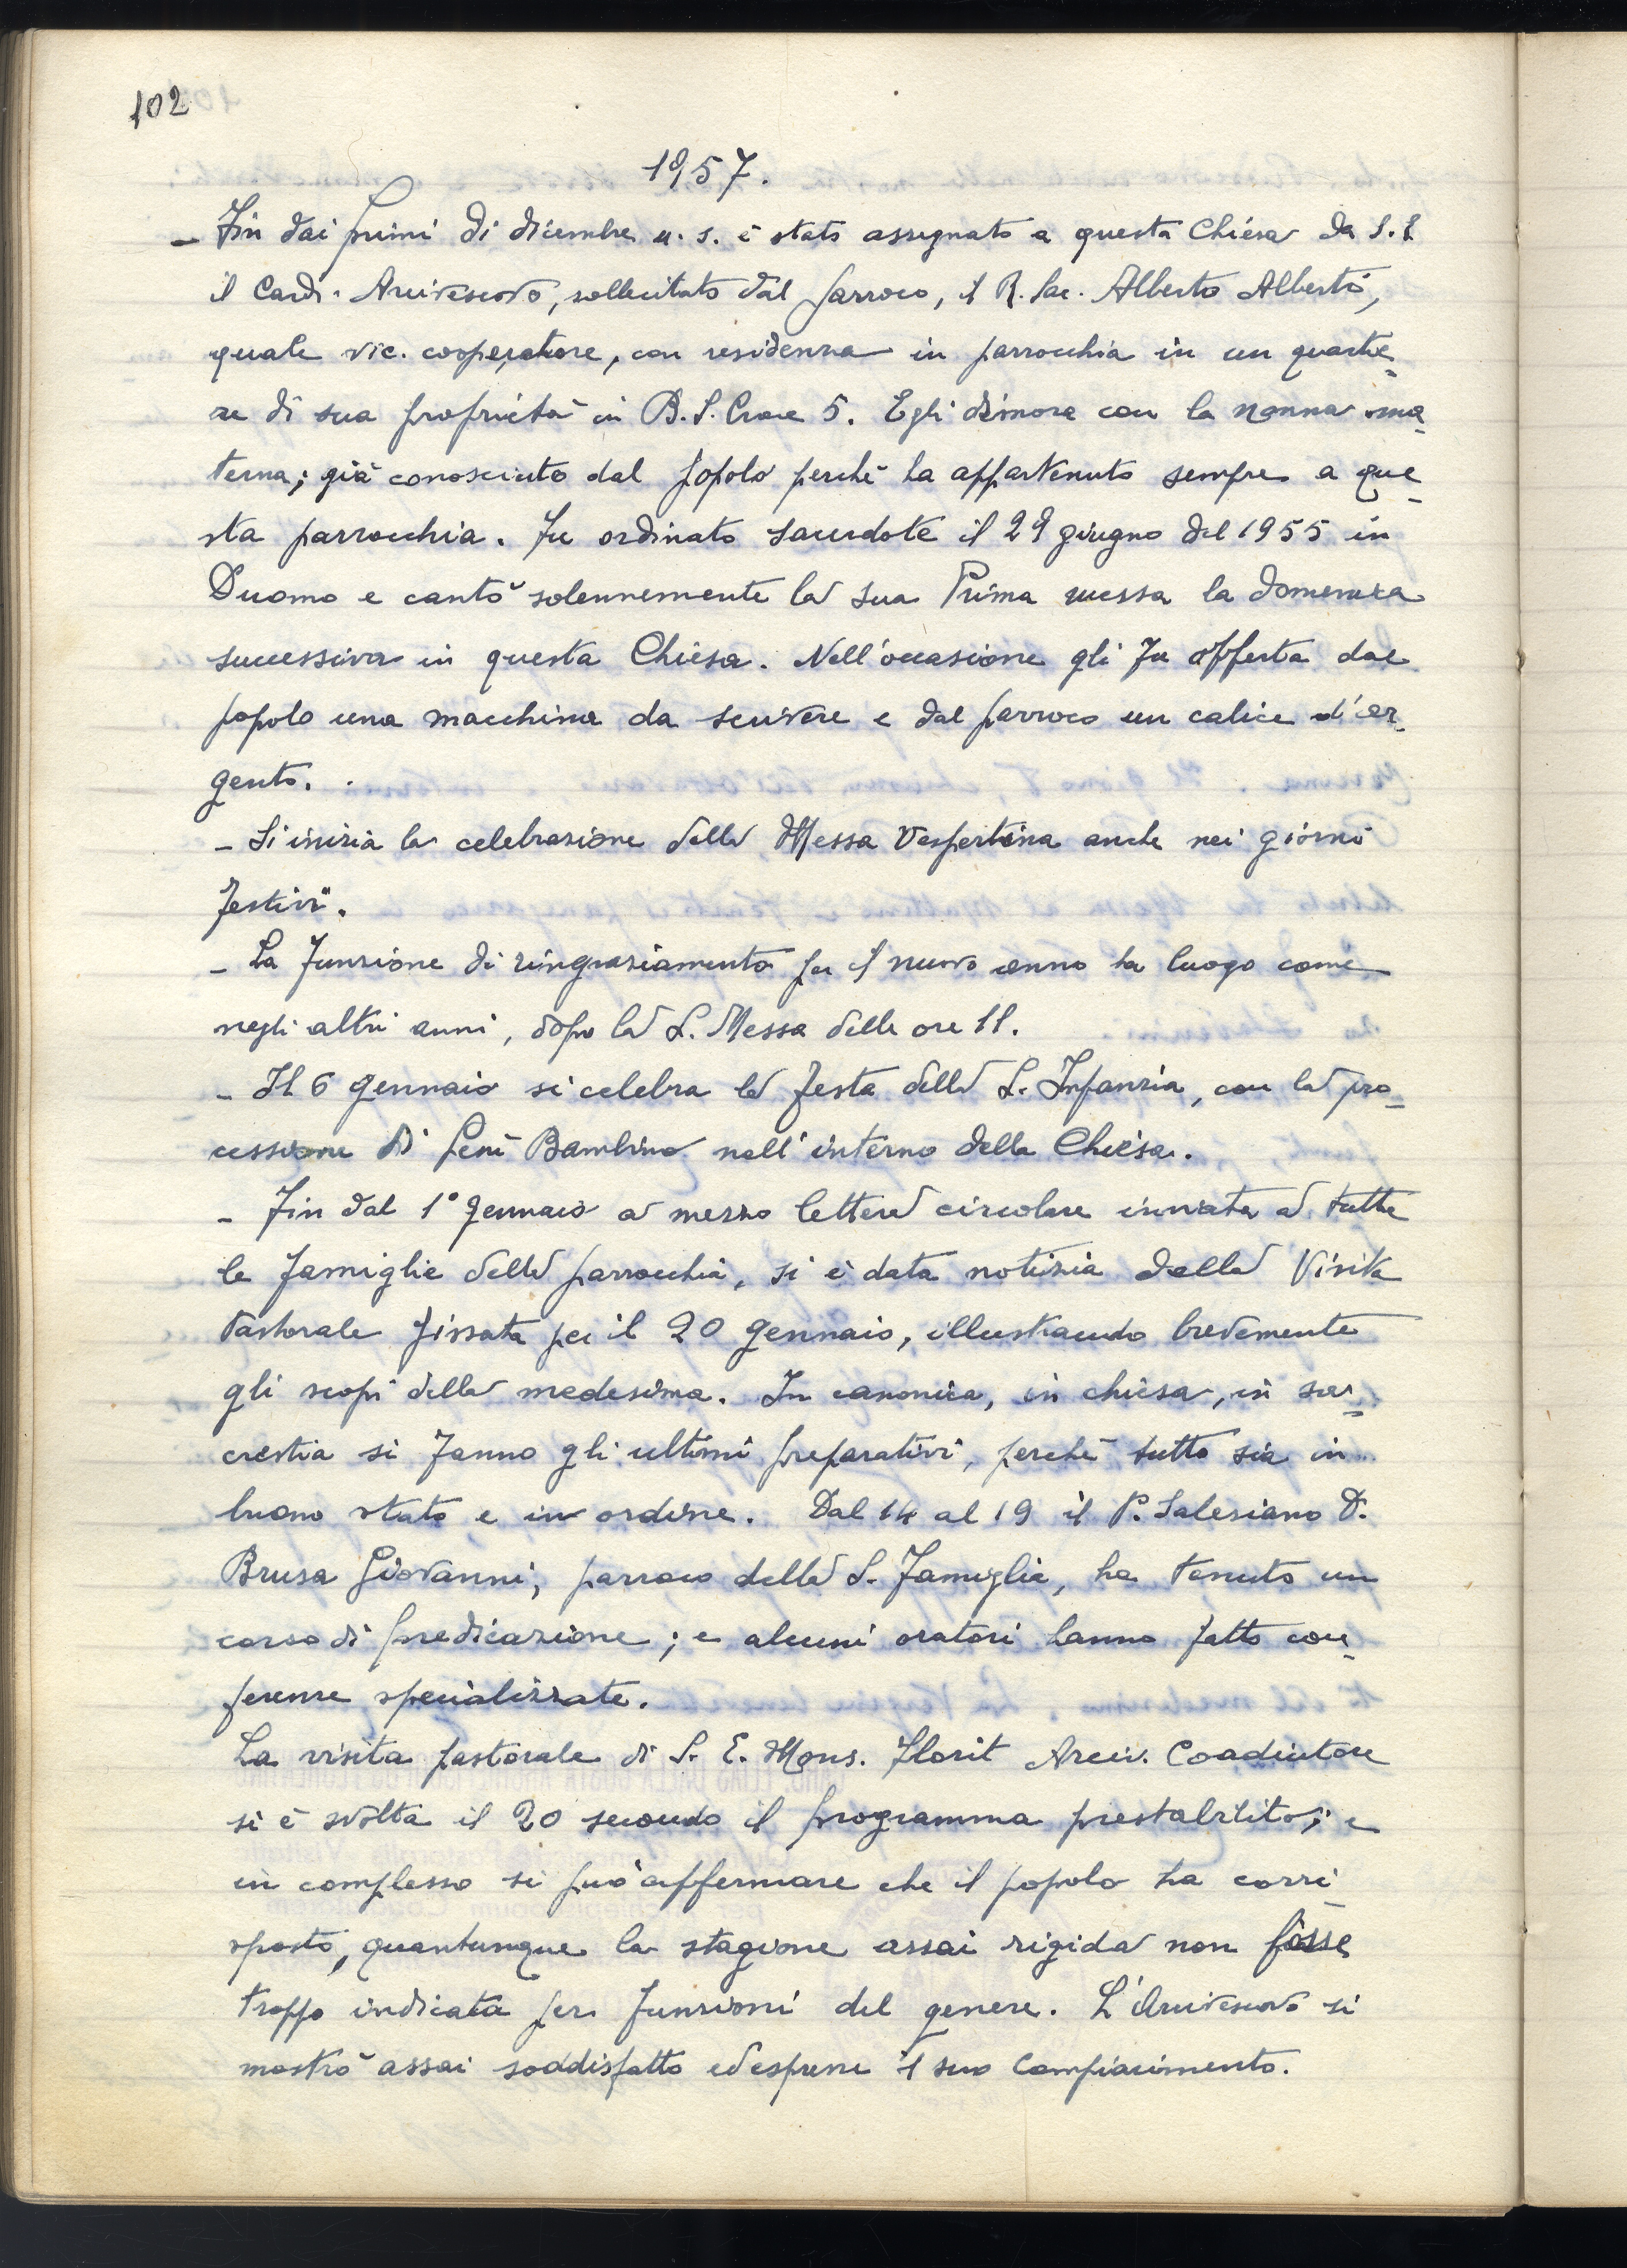 102
1957.
- Fin dai primi di dicembre u. s. è stato assegnato a questa Chiesa da S. E.
il Card. Arcivescovo, sollecitato dal parroco, il R. Sac. Alberto Alberti,
quale vic. cooperatore, con residenza in parrocchia in un quartie-
re di sua proprietà in B. S. Croce 5. Egli dimora con la nonna ma-
terna; già conosciuto dal popolo perché ha appartenuto sempre a que-
sta parrocchia. Fu ordinato sacerdote il 29 giugno del 1955 in
Duomo e cantò solennemente la sua Prima messa la domenica
successiva in questa Chiesa. Nell'occasione gli fu offerta dal
popolo una macchina da scrivere e dal parroco un calice d'ar-
gento.
- Si inizia la celebrazione della Messa Vespertina anche nei giorni
festivi.
- La funzione di ringraziamento per il nuovo anno ha luogo come
negli altri anni, dopo la S. Messa delle ore 11.
- Il 6 gennaio si celebra la festa della S. Infanzia, con la pro-
cessione di Gesù Bambino nell'interno della Chiesa.
- Fin dal 1° gennaio a mezzo lettera circolare inviata a tutte
le famiglie della parrocchia, si è data notizia della Visita
Pastorale fissata per il 20 gennaio, illustrando brevemente
gli scopi della medesima. In canonica, in chiesa, in sa-
crestia si fanno gli ultimi preparativi, perché tutto sia in
buono stato e in ordine. Dal 14 al 19 il P. Salesiano D.
Brusa Giovanni, parroco della S. Famiglia, ha tenuto un
corso di predicazione; e alcuni oratori hanno fatto con-
ferenze specializzate.
La visita pastorale di S. E. Mons. Florit Arciv. Coadiutore
si è svolta il 20 secondo il programma prestabilito; e
in complesso si può affermare che il popolo ha corri-
sposto, quantunque la stagione assai rigida non fosse
troppo indicata per funzioni del genere. L'Arcivescovo si
mostrò assai soddisfatto ed espresse il suo compiacimento.